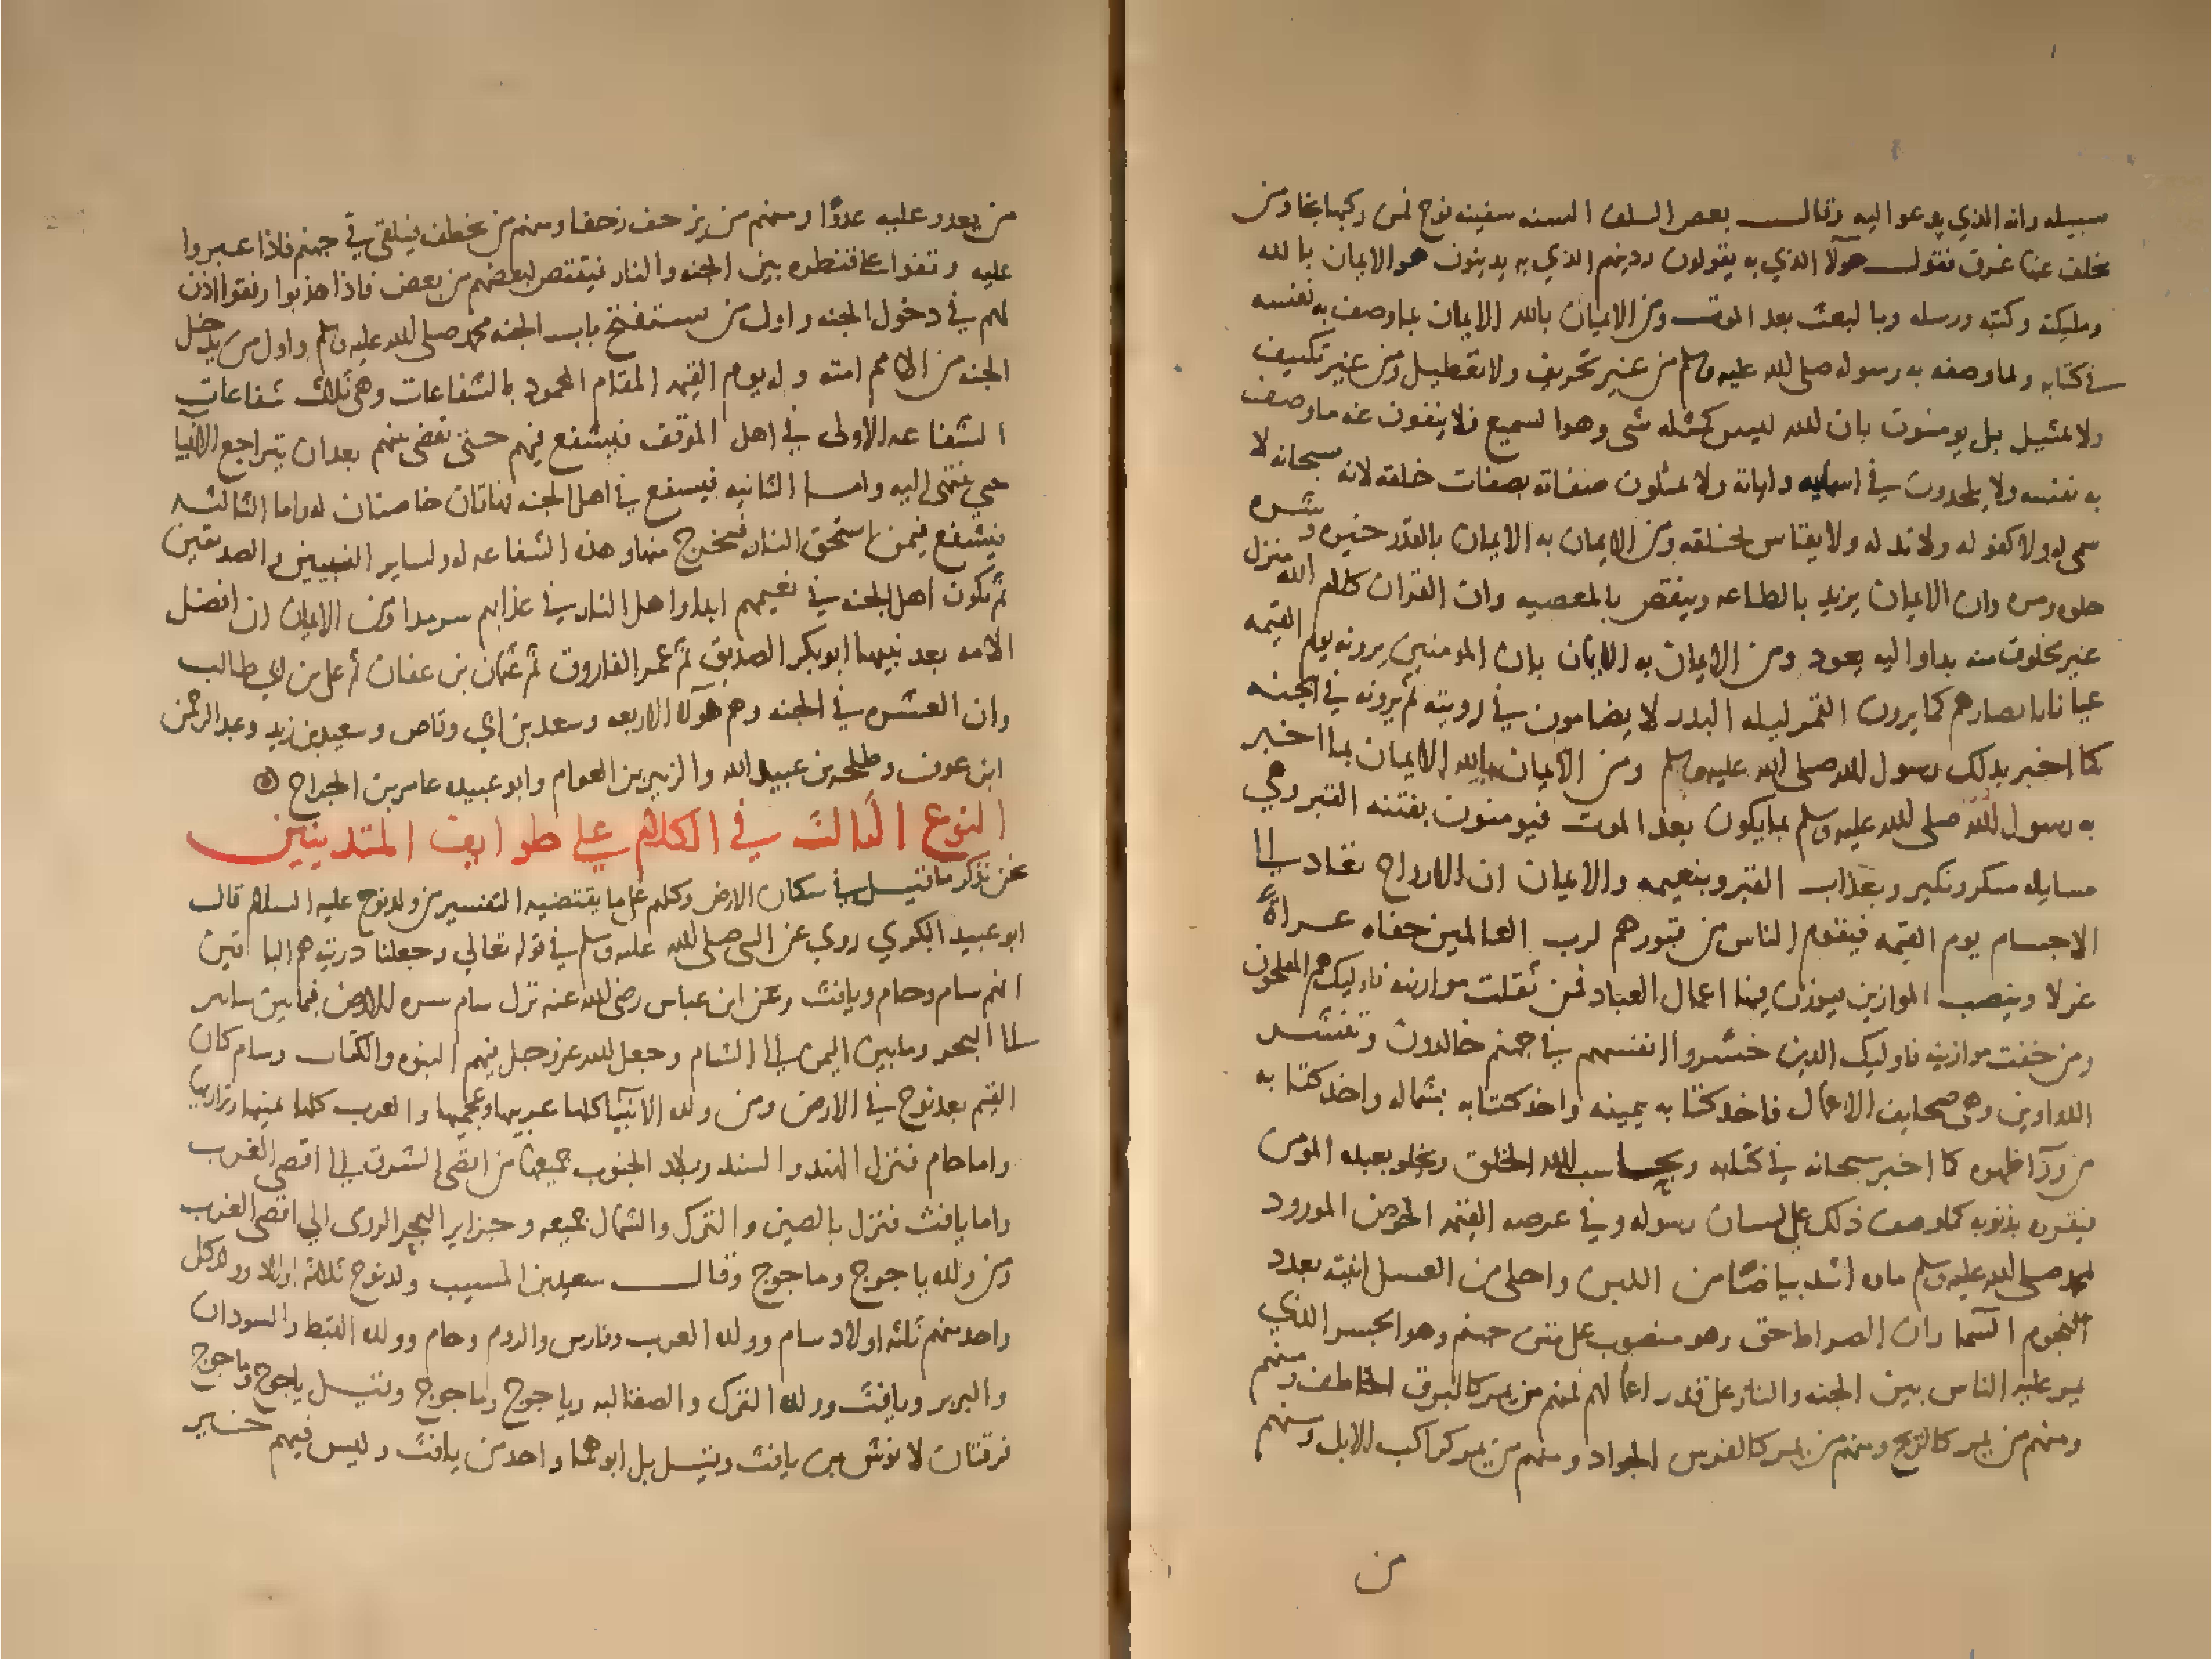 سبيله وانه الذي يدعوا اليه وقال بعض السلف السنه سفينه نوح فمن ركبها نجا ومن
تخلف عنها غرق فنقول هولآ الذي به يقولون ودينهم الذي به يدينون هو الايمان بالله
ومليكته وكتبه ورسله وبالبعث بعد الموت ومن الايمان بالله الايمان بما وصف به نفسه
في كتابه ولما وصفه به رسوله صلى الله عليه وسلم من غير تحريف ولا تعطيل ومن غير تكييف
ولا تمثيل بل يومنون بان الله ليس كمثله شى وهو السميع فلا ينفون عنه ما وصف
به نفسه ولا يلحدون في اسمايه واياته ولا يمثلون صفاته بصفات خلقه لانه سبحانه لا
سمى له ولا كفو له ولا ند له ولا يقاس بخلقه ومن الايمان به الايمان بالقدر خيره وشره
حلوه ومره وان الايمان يزيد بالطاعه وينقص بالمعصيه وان القران كلام الله منزل
غير مخلوق منه بدا واليه يعود ومن الايمان به الايمان بان المومنين يرونه يوم القيمه
عيانا بابصارهم كما يرون القمر ليله البدر لا يضامون في رويته ثم يرونه في الجنه
كما اخبر بذلك رسول الله صلى الله عليه وسلم ومن الايمان بالله الايمان بما اخبر
به رسول الله صلى الله عليه وسلم بما يكون بعد الموت فيومنون بفتنه القبر وهي
مسايله منكر ونكير وبعذاب القبر وبنعيمه والايمان ان الارواح تعاد الى
الاجسام يوم القيمه فيقوم الناس من قبورهم لرب العالمين حفاه عراةً
غرلا وينصب الموازين فيوزن فيها اعمال العباد فمن ثقلت موازينه فاوليك هم المفلحون
ومن خفت موازينه فاوليك الذين خسروا انفسهم في جهنم خالدون وتنشر
الدواوين وهى صحايف الاعمال فاخذ كتابه بيمينه واخذ كتابه بشماله واخذ كتابه
من ورآ ظهره كما اخبر سبحانه في كتابه ويحاسب الله الخلق ويخلو بعبده المومن
فيقرره بذنوبه كما وصف ذلك على لسان رسوله وفي عرصه القيمه الحوض المورود
لمحمد صلى الله عليه وسلم ماه اشد بياضًا من اللبن واحلى من العسل انيته بعدد
النجوم السما وان الصراط حق وهو منصوب على متن جهنم وهو الجسر الذي
يمر عليه الناس بين الجنه والنار على قدر اعمالهم فمنهم من يمر كالبرق الخاطف ومنهم
ومنهم من يمر كالريح ومنهم من يمر كالفرس الجواد ومنهم من يمر كراكب الابل ومنهم
من
من يعدو عليه عدوًا ومنهم من يزحف زحفا ومنهم من يخطف فيلقى في جهنم فاذا عبروا
عليه وقفوا على قنطره بين الجنه والنار فيقتص لبعضهم من بعض فاذا هذبوا ونقوا اذن
لهم في دخول الجنه واول من يستفتح باب الجنه محمد صلى الله عليه وسلم واول من يدخل
الجنه من الامم امته وله يوم القيمه المقام المحمود بالشفاعات وهى ثلاث شفاعات
الشفاعه الاولى في اهل الموقف فيشفع فيهم حتى يقضى بينهم بعد ان يتراجع الانبيا
حتى تنتهى اليه واما الثانيه فيشفع في اهل الجنه وهاتان خاصتان له واما الثالثه
فيشفع فيمن استحق النار فيخرج منها وهذه الشفاعه له ولساير النبيين والصديقين
ثم تكون اهل الجنه في نعيمهم ابدا واهل النار في عذابهم سرمدا ومن الايمان ان افضل
الامه بعد نبيها ابو بكر الصديق ثم عمر الفاروق ثم عثمان بن عفان ثم على بن ابي طالب
وان العشره في الجنه وهم هولآ الاربعه وسعد بن ابي وقاص وسعيد بن زيد وعبد الرحمن
ابن عوف وطلحه بن عبيد الله والزبير بن العوام وابو عبيده عامر بن الجراح
النوع الثالث في الكلام على طوايف المتدينين
نحن نذكر ما قيل في سكان الارض وكلهم على ما يقتضيه التفسير من ولد نوح عليه السلام قال
ابو عبيد البكري روي عن النبى صلى الله عليه وسلم في قوله تعالي وجعلنا ذريته هم الباقين
انهم سام وحام ويافث وعن ابن عباس رضى الله عنه نزل سام سره الارض فما بين
الى البحر وما بين اليمن الى الشام وجعل الله عز وجل فيهم النبوه والكتاب وسام كان
القيم بعد نوح في الارض ومن ولده الانبيآ كلها عربيها وعجميها والعرب كلها يمنيها ونزاريها
واما حام فنزل الهند والسند وبلاد الجنوب جميعها من اقصى الشرق الى اقصى الغرب
واما يافث فنزل بالصين والترك والشمال جميعه وجزاير البحر الرومى الي اقصى الغرب
ومن ولده ياجوج وماجوج وقال سعيد بن المسيب ولد نوح ثلاثه اولاد وولد كل
واحد منهم ثلثه اولاد سام وولده العرب وفارس والروم وحام وولده القبط والسودان
والبربر ويافث وولده الترك والصقالبه وياجوج وماجوج وقيل ياجوج وماجوج
فرقتان من يافث وقيل بل ابوهما واحد من يافث وليس فيهم خير